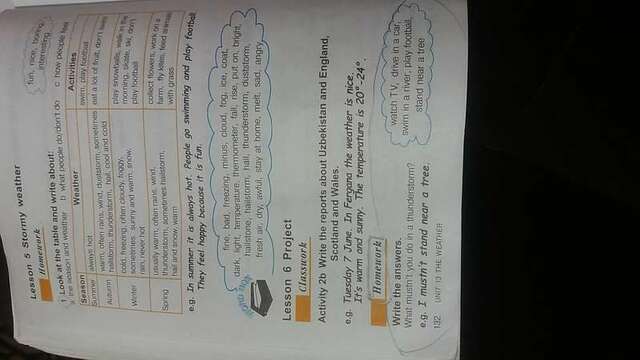 Lesson 5 Stormy weather
Homework
fun, nice, boring,
interesting
1 Look at the table and write about:
a the season and weather b what people do/don't do c how people feel
Season Weather Activities
Summer always hot swim, play football
Autumn warm, often rains, wind, duststorm, sometimes eat a lot of fruit, don't swim
hailstorm, thunderstorm, hail, cool and cold
Winter cold, freezing, often cloudy, foggy, play snowballs, walk in the
sometimes sunny and warm, snow, morning, skate, ski, don't
rain, never hot play football
Spring usually warm, often rains, wind, collect flowers, work on a
thunderstorm, sometimes hailstorm, farm, fly kites, feed animals
hail and snow, warm with grass
e.g. In summer it is always hot. People go swimming and play football
They feel happy because it is fun.
WORD BOX
fine, bad, freezing, minus, cloud, fog, ice, coat,
dark, light, temperature, thermometer, fall, rise, put on, bright,
hailstone, hailstorm, hail, thunderstorm, duststorm,
fresh air, dry, awful, stay at home, melt, sad, angry
Lesson 6 Project
Classwork
Activity 2b Write the reports about Uzbekistan and England,
Scotland and Wales.
e.g. Tuesday 7 June. In Fergana the weather is nice.
It's warm and sunny. The temperature is 20°-24°.
Homework
Write the answers.
What mustn't you do in a thunderstorm?
e.g. I mustn't stand near a tree.
watch TV, drive in a car,
swim in a river, play football,
stand near a tree
132 UNIT 13 THE WEATHER